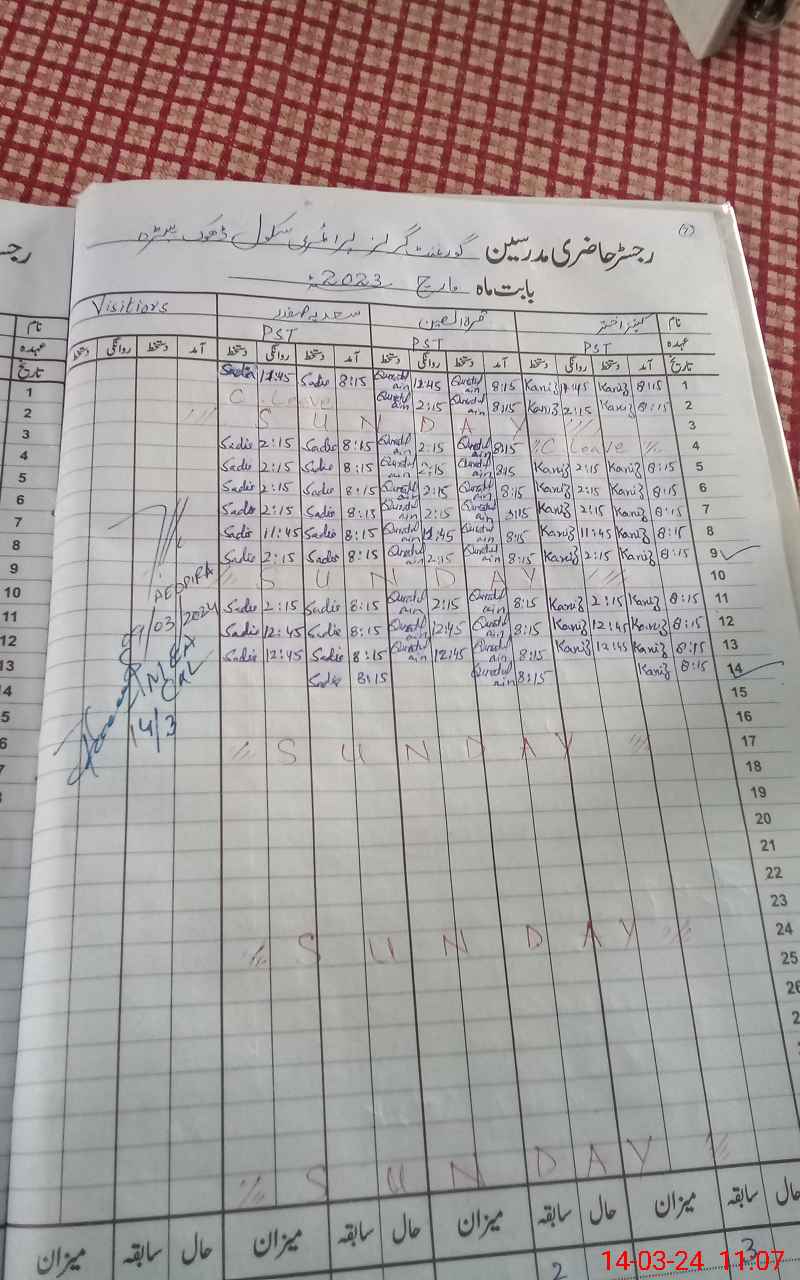 (7)
رجسٹر حاضری مدرسین گورنمنٹ گرلز پرائمری سکول ڈھوک
بابت ماہ مارچ 2023ء
نام کنیز اختر قرۃ العین سعدیہ صفدر Visitiors
عہدہ PST PST PST
تاریخ آمد دستخط روانگی دستخط آمد دستخط روانگی دستخط آمد دستخط روانگی دستخط آمد دستخط روانگی دستخط
1 8:15 Kaniz Kaniz 8:15 Quratul ain 12:45 Quratul ain 8:15 Sadie 12:45 Sadia
2 8:15 Kaniz 2:15 Kaniz 8:15 Quratul ain 2:15 Quratul ain C. Leave
3 SUNDAY
4 C Leave 8:15 Quratul ain 2:15 Quratul ain 8:15 Sadie 2:15 Sadie
5 8:15 Kaniz 2:15 Kaniz 8:15 Quratul ain 2:15 Quratul ain 8:15 Sadie 2:15 Sadie
6 8:15 Kaniz 2:15 Kaniz 8:15 Quratul ain 2:15 Quratul ain 8:15 Sadie 2:15 Sadie
7 8:15 Kaniz 2:15 Kaniz 8:15 Quratul ain 2:15 Quratul ain 8:15 Sadie 2:15 Sadie
8 8:15 Kaniz 11:45 Kaniz 8:15 Quratul ain 11:45 Quratul ain 8:15 Sadie 11:45 Sadie
9 8:15 Kaniz 2:15 Kaniz 8:15 Quratul ain 2:15 Quratul ain 8:15 Sadie 2:15 Sadie
10 SUNDAY
11 8:15 Kaniz 2:15 Kaniz 8:15 Quratul ain 2:15 Quratul ain 8:15 Sadie 2:15 Sadie
12 8:15 Kaniz 12:45 Kaniz 8:15 Quratul ain 12:45 Quratul ain 8:15 Sadie 12:45 Sadie
13 8:15 Kaniz 12:45 Kaniz 8:15 Quratul ain 12:45 Quratul ain 8:15 Sadie 12:45 Sadie
14 8:15 Kaniz 8:15 Quratul ain 8:15 Sadie
/03/2024
14/3
15
16
17 SUNDAY
18
19
20
21
22
23
24 SUNDAY
25
26
SUNDAY
حال سابقہ میزان حال سابقہ میزان حال سابقہ میزان حال سابقہ میزان
3 2
14-03-24 11:07
رجس
نام
عہدہ
تاریخ
1
2
3
4
5
6
7
8
9
10
11
12
13
14